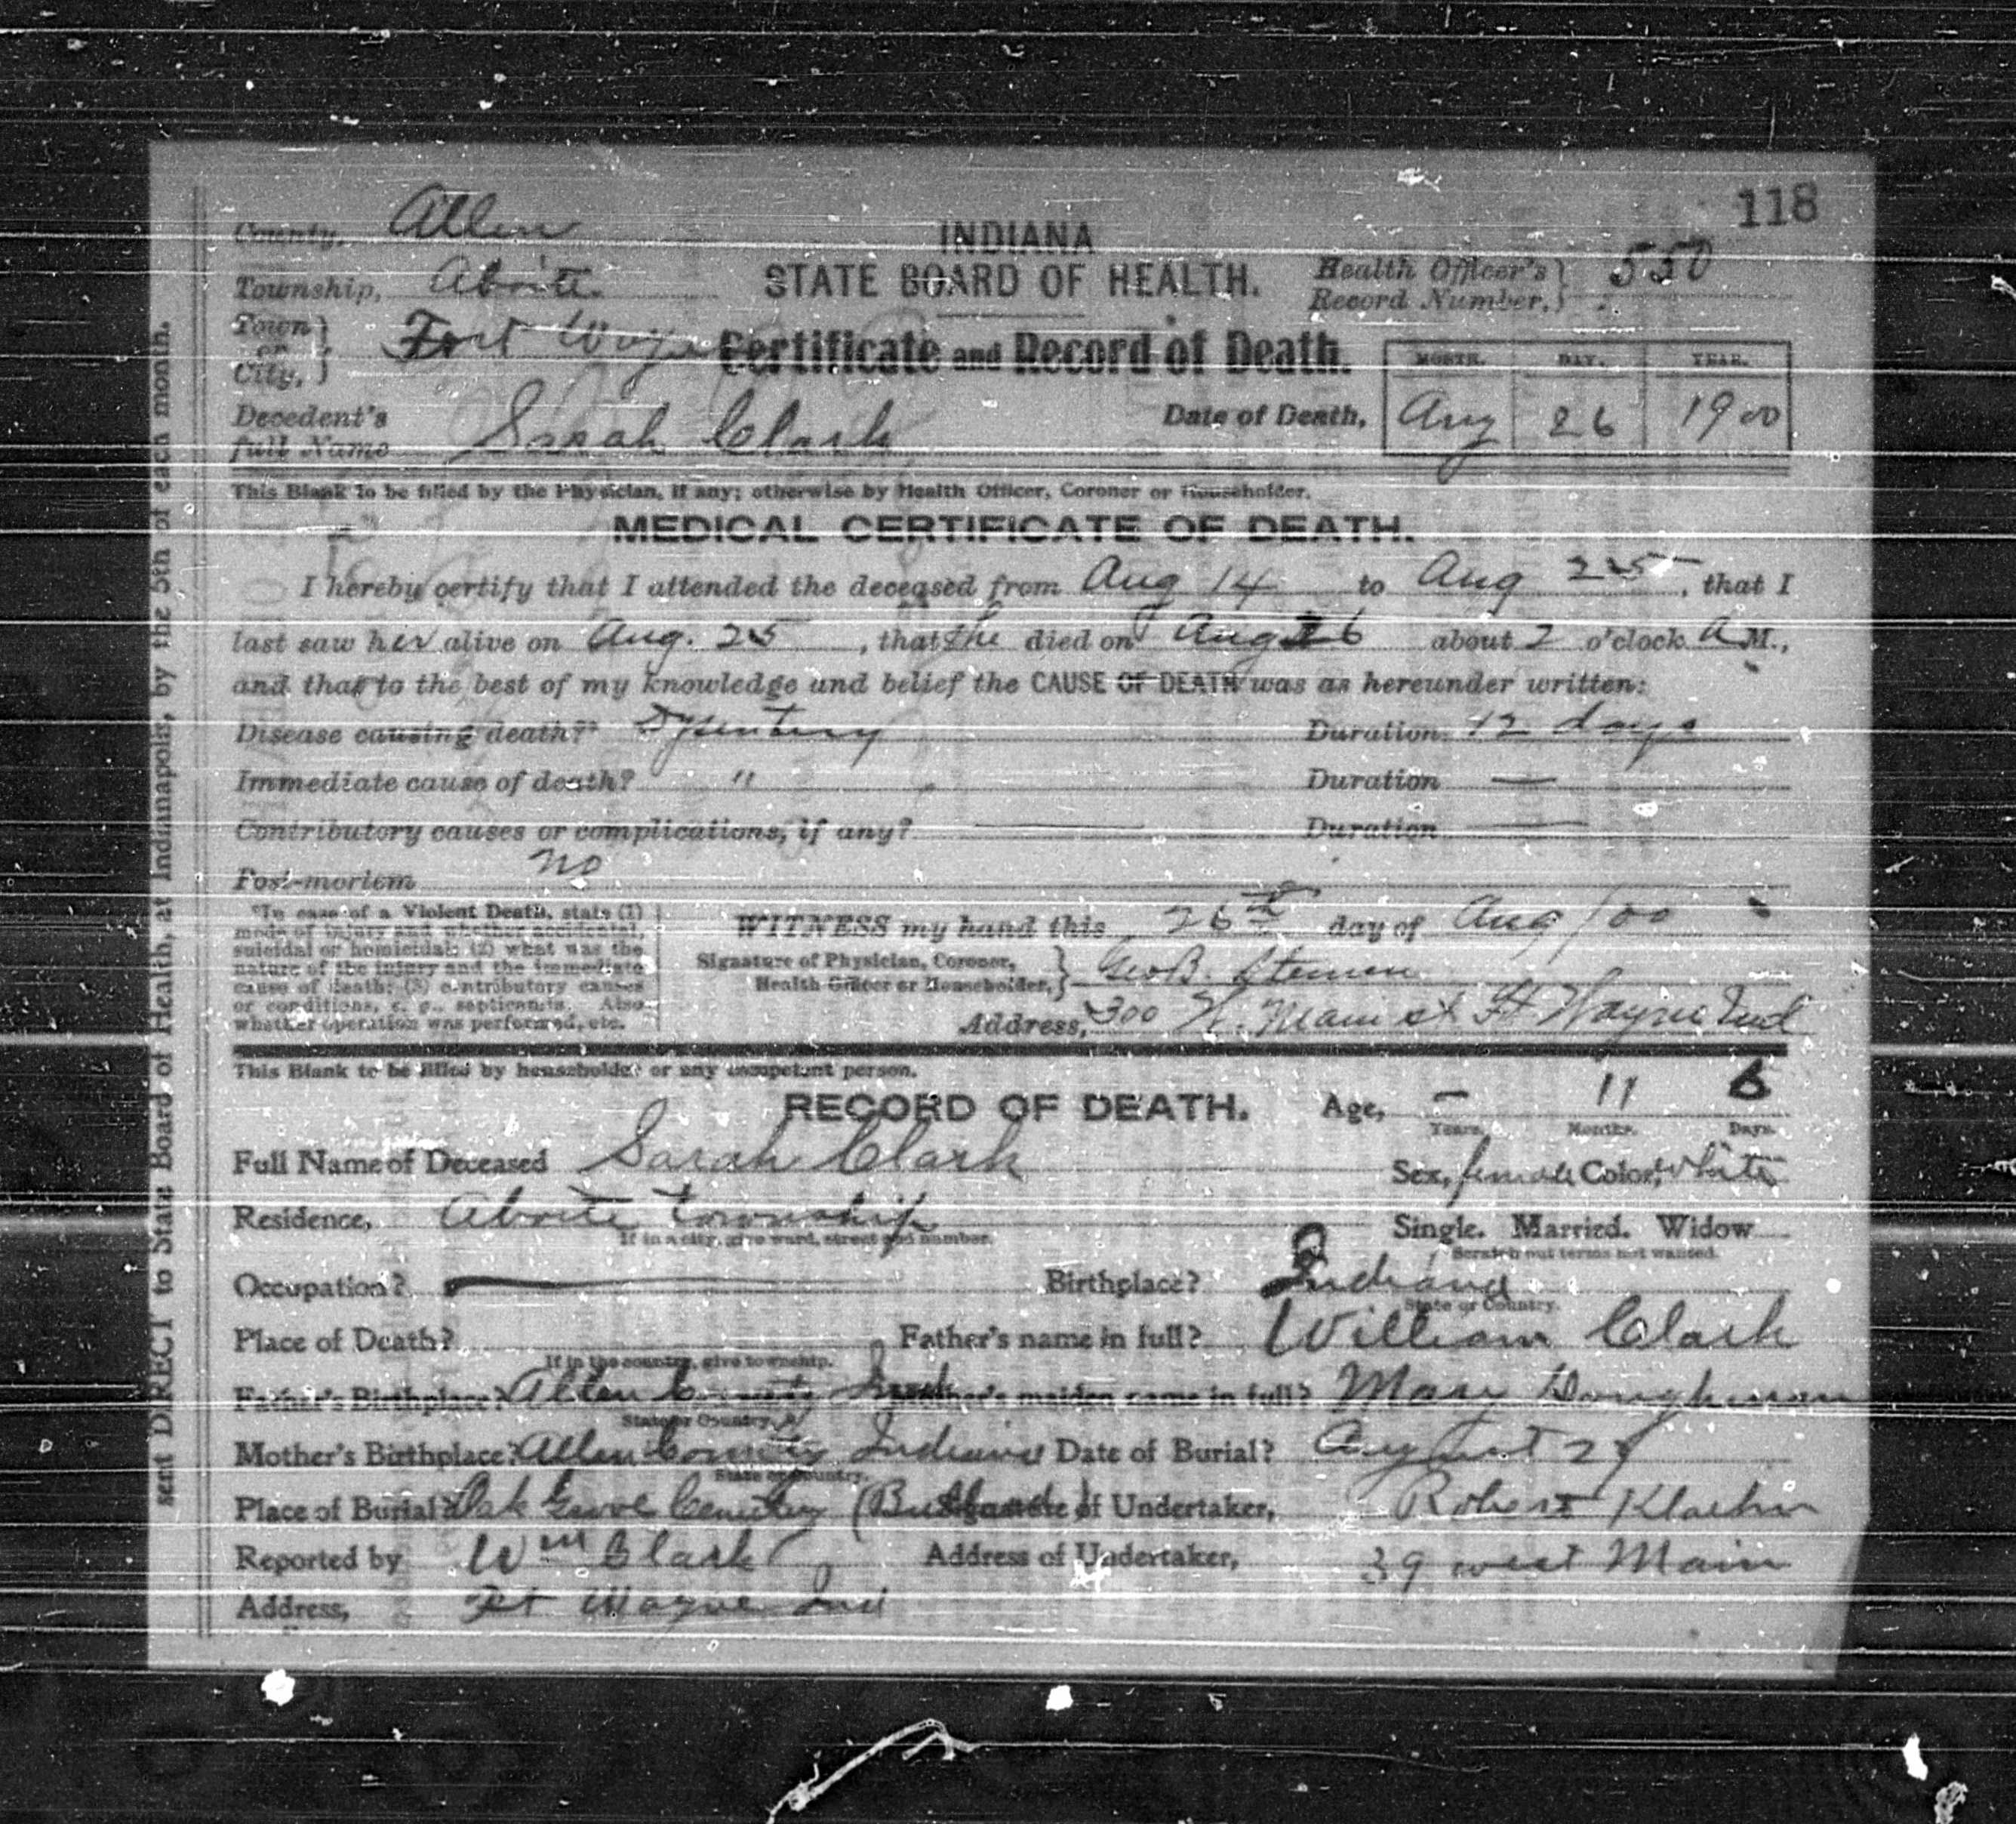 118
County, Allen
INDIANA
Township, Aboite
STATE BOARD OF HEALTH.
Health Officer's Record Number, 550
Town or City, Fort Wayne
Certificate and Record of Death.
MONTH. DAY. YEAR.
Decedent's full Name Sarah Clark
Date of Death, Aug 26 1900
This Blank to be filled by the Physician, if any; otherwise by Health Officer, Coroner or Householder.
MEDICAL CERTIFICATE OF DEATH.
I hereby certify that I attended the deceased from Aug 14 to Aug 25, that I
last saw her alive on Aug. 25, that She died on Aug 26 about 2 o'clock A M.,
and that to the best of my knowledge and belief the CAUSE OF DEATH was as hereunder written:
Disease causing death?* Dysentery Duration 12 days
Immediate cause of death? " Duration —
Contributory causes or complications, if any? — Duration —
Post-mortem no
*In case of a Violent Death, state (1)
mode of injury and whether accidental,
suicidal or homicidal; (2) what was the
nature of the injury and the immediate
cause of death; (3) contributory causes
or conditions, e. g., septicemia. Also
whether operation was performed, etc.
WITNESS my hand this 26th day of Aug / 00
Signature of Physician, Coroner, Health Officer or Householder, Geo B. Stemen
Address, 300 W. Main st Ft Wayne Ind
This Blank to be filled by householder or any competent person.
RECORD OF DEATH. Age, – 11 6
Years. Months. Days.
Full Name of Deceased Sarah Clark Sex, female Color, white
Residence, Aboite township Single. Married. Widow
If in a city, give ward, street and number. Scratch out terms not wanted.
Occupation? — Birthplace? Indiana
State or Country.
Place of Death? Father's name in full? William Clark
If in the country, give township.
Father's Birthplace? Allen County Ind Mother's maiden name in full? Mary
State or Country.
Mother's Birthplace? Allen County Indiana Date of Burial? August 27
State or Country.
Place of Burial? Oak Grove Cemetery Signature of Undertaker, Robert Klaehn
Reported by Wm Clark Address of Undertaker, 39 west Main
Address, Ft Wayne Ind
sent DIRECT to State Board of Health, at Indianapolis, by the 5th of each month.